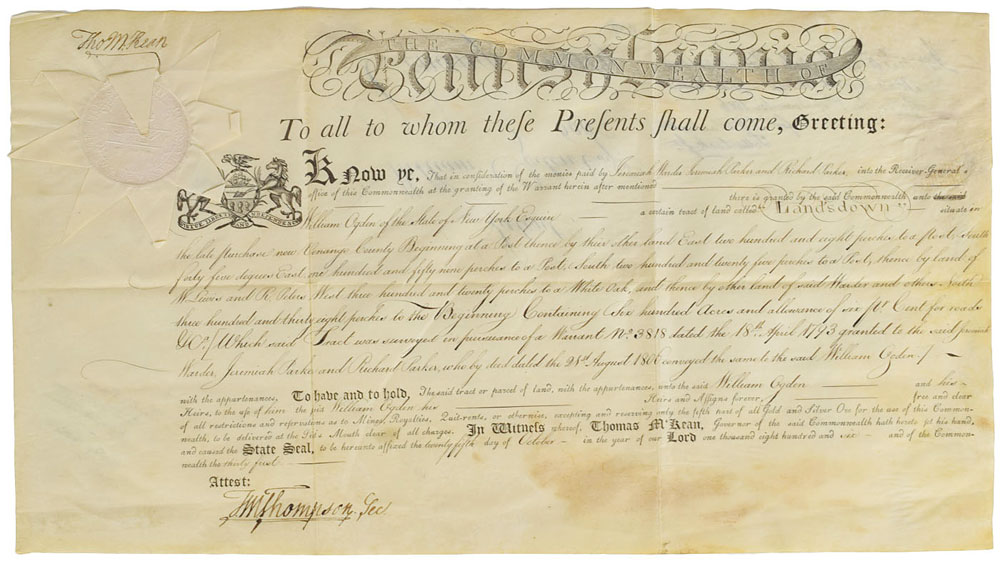 Tho M:Kean
THE COMMONWEALTH OF
Pennsylvania
To all to whom theſe Preſents ſhall come, Greeting:
Know ye, That in conſideration of the monies paid by Jeremiah Warder Jeremiah Parker and Richard Parker, into the Receiver-General's
office of this Commonwealth at the granting of the Warrant herein after mentioned there is granted by the ſaid Commonwealth unto
William Ogden of the State of New York Esquire a certain tract of land called "Landsdown" situate in
the late purchase now Venango County Beginning at a Post thence by their other land East two hundred and eight perches to a Post, South
forty five degrees East, one hundred and fifty nine perches to a Post, South two hundred and twenty five perches to a Post, thence by land of
W. Lewis and R. Peters West three hundred and twenty perches to a White Oak, and thence by other land of said Warder and others North
three hundred and thirty eight perches to the Beginning Containing Six hundred Acres and allowance of six pr Cent for roads
&c. Which said Tract was surveyed in pursuance of a Warrant No. 3818 dated the 18th April 1793 granted to the said Jeremiah
Warder, Jeremiah Parker and Richard Parker, who by deed dated the 28th August 1806 conveyed the same to the said William Ogden
with the appurtenances, To have and to hold, The ſaid tract or parcel of land, with the appurtenances, unto the ſaid William Ogden and his
Heirs, to the uſe of him the ſaid William Ogden his Heirs and Aſſigns forever, free and clear
of all reſtrictions and reſervations as to Mines, Royalties, Quit-rents, or otherwiſe, excepting and reſerving only the fifth part of all Gold and Silver Ore for the uſe of this Common-
wealth, to be delivered at the Pit's Mouth clear of all charges. In Witneſs whereof, Thomas M'Kean, Governor of the ſaid Commonwealth hath hereto ſet his hand,
and cauſed the State Seal, to be hereunto affixed the twenty fifth day of October in the year of our Lord one thouſand eight hundred and six and of the Common-
wealth the thirty first
Attest:
TM Thompson, Sec